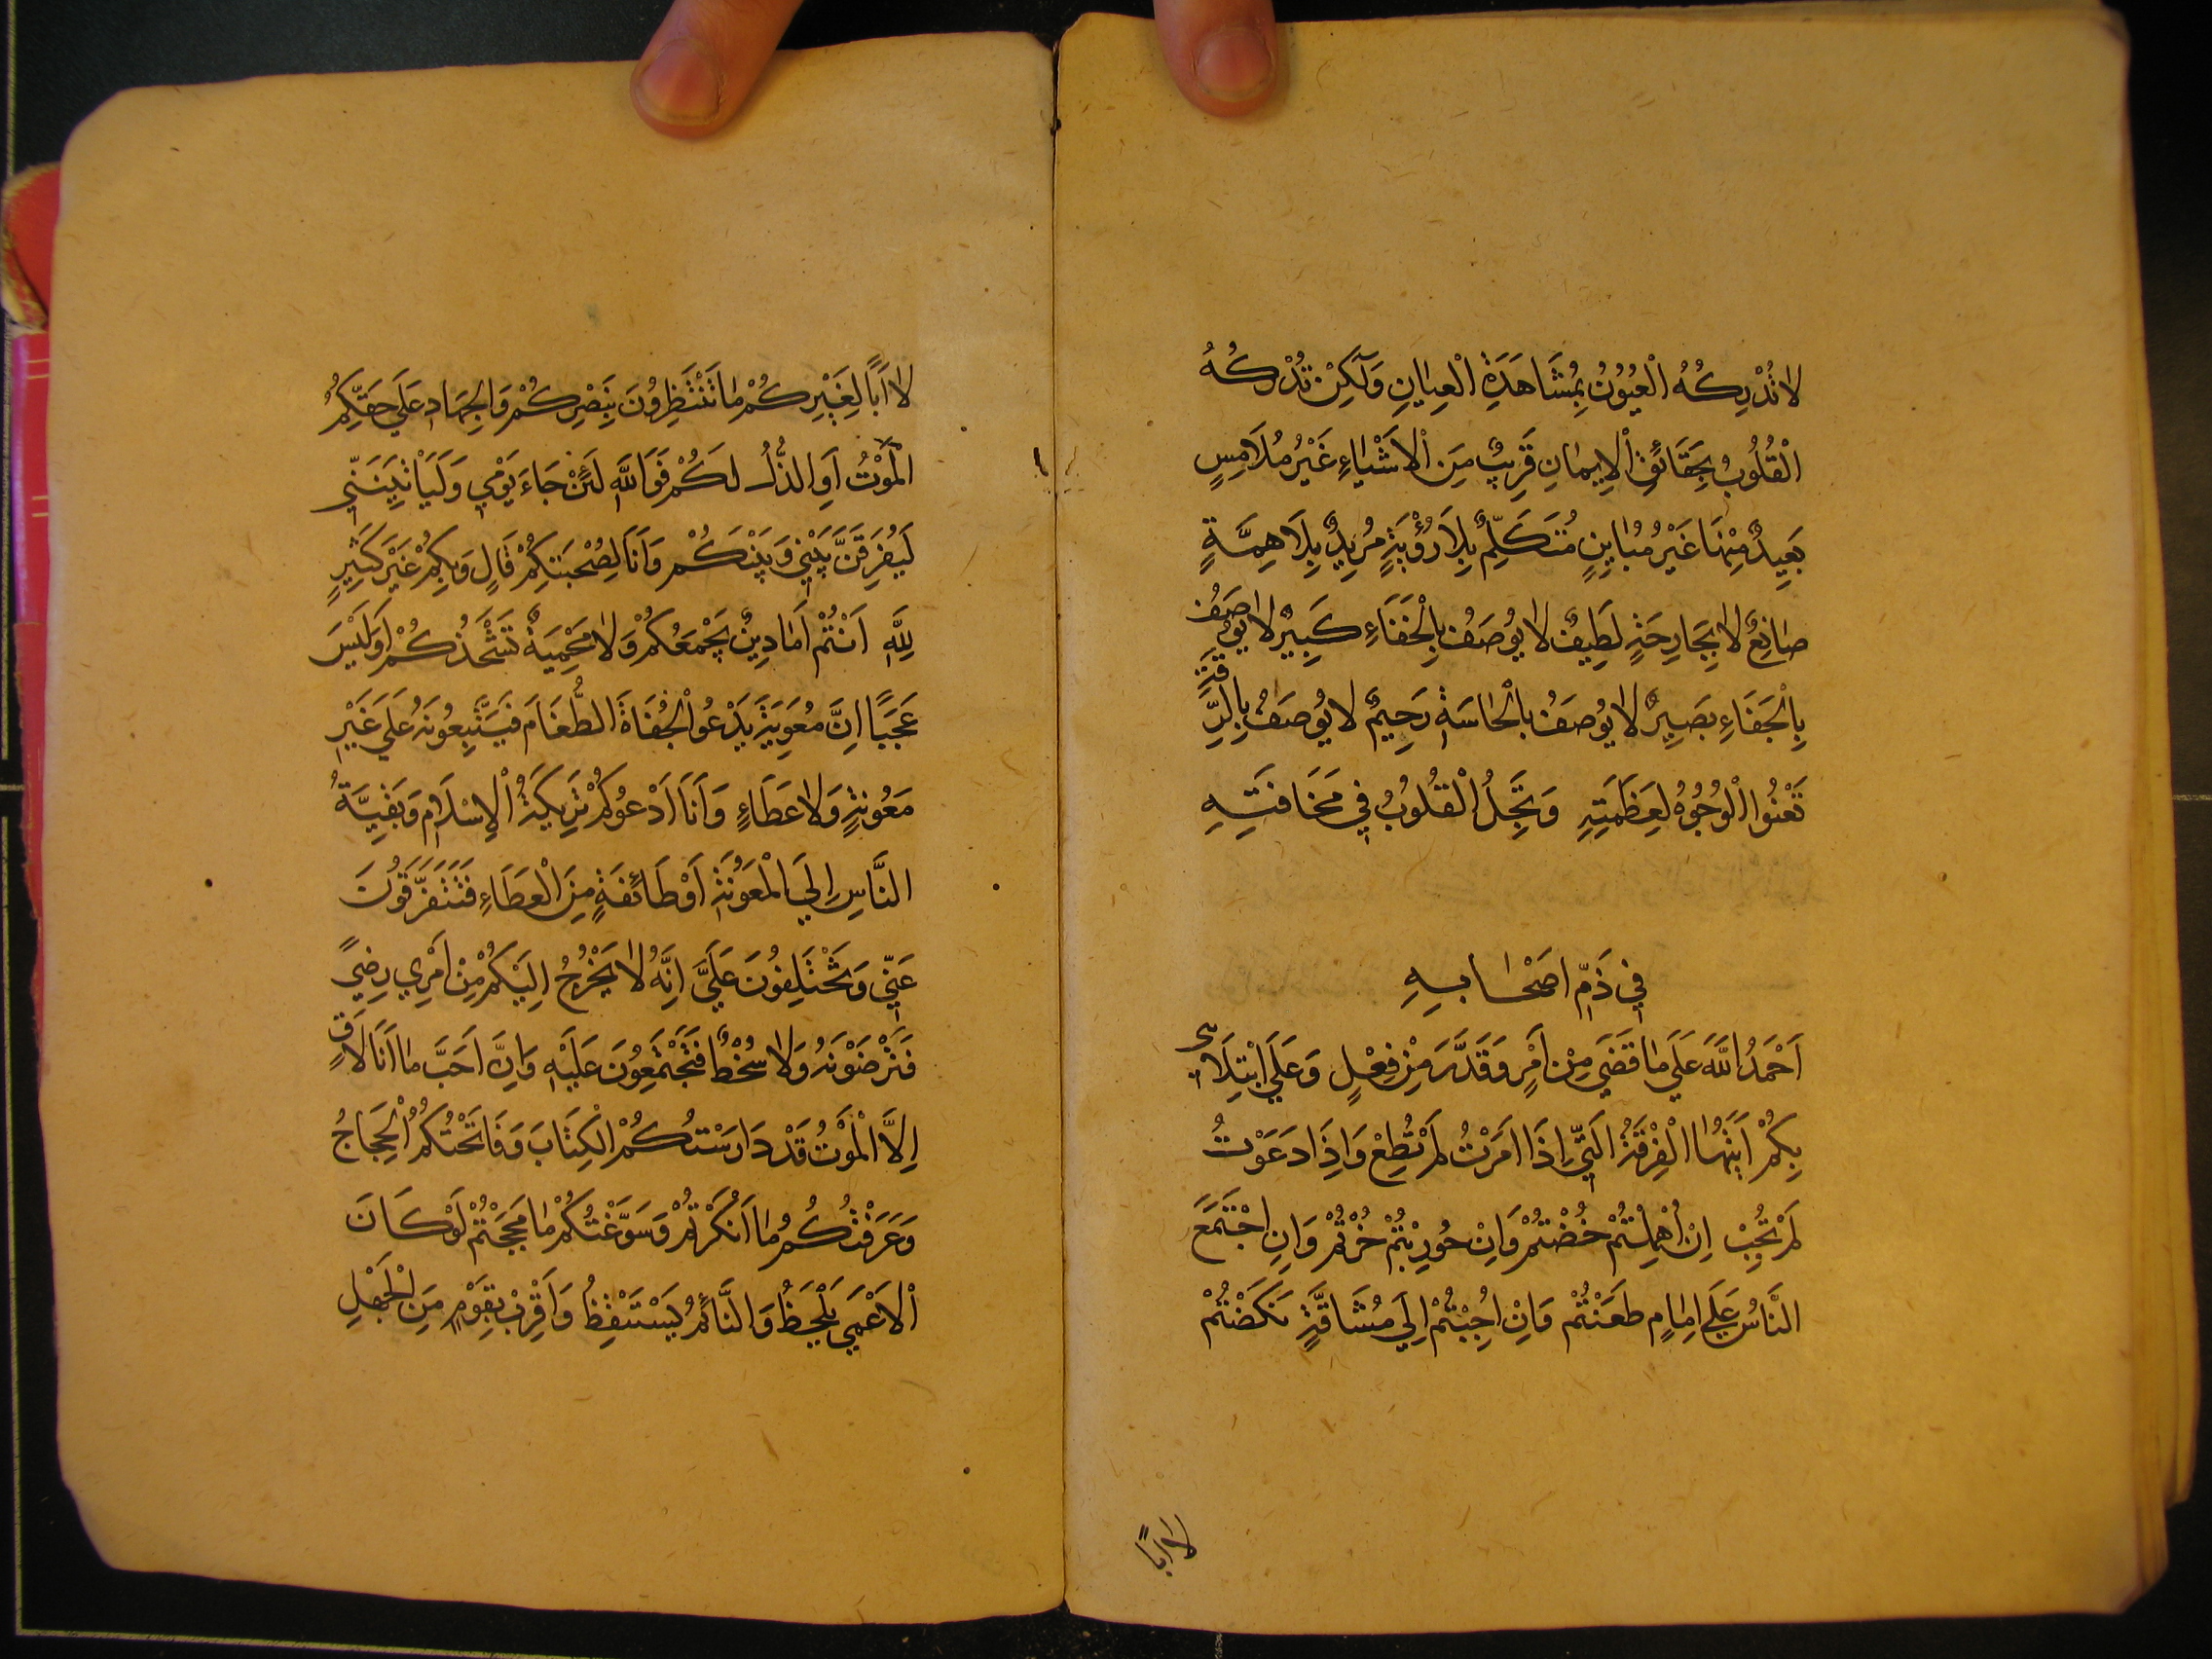 لَا تُدْرِكُهُ الْعُيُونُ بِمُشَاهَدَةِ الْعِيَانِ وَلَكِنْ تُدْرِكُهُ
الْقُلُوبُ بِحَقَائِقِ الْإِيمَانِ قَرِيبٌ مِنَ الْأَشْيَاءِ غَيْرُ مُلَامِسٍ
بَعِيدٌ مِنْهَا غَيْرُ مُبَايِنٍ مُتَكَلِّمٌ بِلَا رُؤْيَةٍ مُرِيدٌ بِلَا هِمَّةٍ
صَانِعٌ لَا بِجَارِحَةٍ لَطِيفٌ لَا يُوصَفُ بِالْخَفَاءِ كَبِيرٌ لَا يُوصَفُ
بِالْجَفَاءِ بَصِيرٌ لَا يُوصَفُ بِالْحَاسَةِ رَحِيمٌ لَا يُوصَفُ بِالرِّقَّةِ
تَعْنُوا الْوُجُوهُ لِعَظَمَتِهِ وَتَجِلُ الْقُلُوبُ فِي مَخَافَتِهِ
فِي ذَمِّ اَصْحَابِهِ
اَحْمَدُ اللَّهَ عَلَي مَا قَضَي مِنْ اَمْرٍ وَقَدَّرَ مِنْ فِعْلٍ وَعَلَي ابْتِلَائِي
بِكُمْ اَيَّتُهَا الْفِرْقَةُ الَّتِي اِذَا اَمَرْتُ لَمْ تُطِعْ وَاِذَا دَعَوْتُ
لَمْ تُجِبْ اِنْ اُهْمِلْتُمْ خُضْتُمْ وَاِنْ حُورِبْتُمْ خُرْتُمْ وَاِنِ اجْتَمَعَ
النَّاسُ عَلَي اِمَامٍ طَعَنْتُمْ وَاِنْ اُجِبْتُمْ اِلَي مُشَاقَّةٍ نَكَصْتُمْ
لَا اَبًا
لَا اَبًا لِغَيْرِكُمْ مَا تَنْتَظِرُونَ بِنَصْرِكُمْ وَالْجِهَادِ عَلَي حَقِّكُمْ
الْمَوْتُ اَوِ الذُّلُ لَكُمْ فَوَاللَّهِ لَئِنْ جَاءَ يَوْمِي وَلَيَاْتِيَنَّنِي
لَيُفَرِّقَنَّ بَيْنِي وَبَيْنَكُمْ وَاَنَا لِصُحْبَتِكُمْ قَالٍ وَبِكُمْ غَيْرَ كَثِيرٍ
لِلَّهِ اَنْتُمْ اَمَا دِينٌ يَجْمَعُكُمْ وَلَا مَحْمِيَةٌ تَشْحَذُكُمْ اَوَلَيْسَ
عَجَبًا اَنَّ مُعَوِيَةَ يَدْعُو الْجُفَاةَ الطُّغَامَ فَيَتَّبِعُونَهُ عَلَي غَيْرِ
مَعُونَةٍ وَلَا عَطَاءٍ وَاَنَا اَدْعُوكُمْ تَرِيكَةُ الْاِسْلَامِ وَبَقِيَّةُ
النَّاسِ اِلَي الْمَعُونَةِ اَوْ طَائِفَةٍ مِنَ الْعَطَاءِ فَتَتَفَرَّقُونَ
عَنِّي وَتَخْتَلِفُونَ عَلَيَّ اِنَّهُ لَا يَخْرُجُ اِلَيْكُمْ مِنْ اَمْرِي رِضًي
فَتَرْضَوْنَهُ وَلَا سُخْطٌ فَتَجْتَمِعُونَ عَلَيْهِ وَاِنَّ اَحَبَّ مَا اَنَا لَاقٍ
اِلَيَّ الْمَوْتُ قَدْ دَارَسْتُكُمْ الْكِتَابَ وَفَاتَحْتُكُمُ الْحِجَاجُ
وَعَرَفْتُكُمْ مَا اَنْكَرْتُمْ وَسَوَّغْتُكُمْ مَا مَجَجْتُمْ لَوْ كَانَ
الْاَعْمَي يَلْحَظُ وَالنَّائِمُ يَسْتَيْقِظُ وَاَقْرِبْ بِقَوْمٍ مِنَ الْجَهْلِ